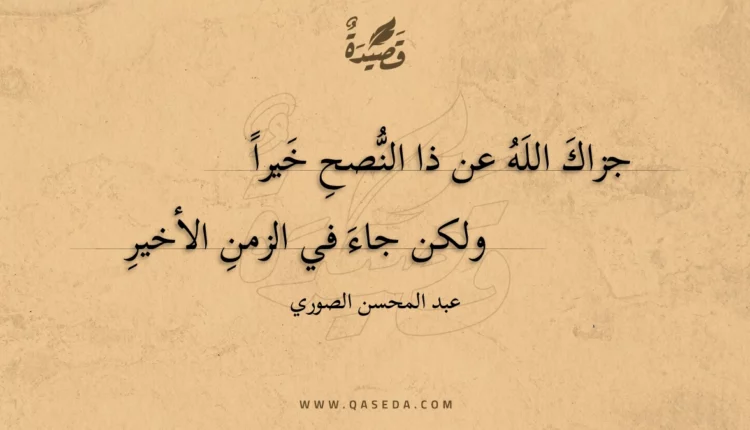 قَصِيْدَةٌ
جزاكَ اللَهُ عن ذا النُّصحِ خَيراً
ولكن جاءَ في الزمنِ الأخيرِ
عبد المحسن الصوري
WWW.QASEDA.COM